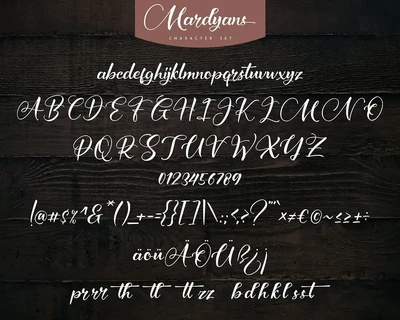 Mardyans
CHARACTER SET
abcdefghijklmnopqrstuvwxyz
ABCDEFGHIJKLMNO
PQRSTUVWXYZ
0123456789
!@#$%^&*()_+-={}[]|\:;<,>?"'`×≠€©~≤≥±÷
äöüÄÖÜß¿¡
prrr th tl tt zz bdhklsst